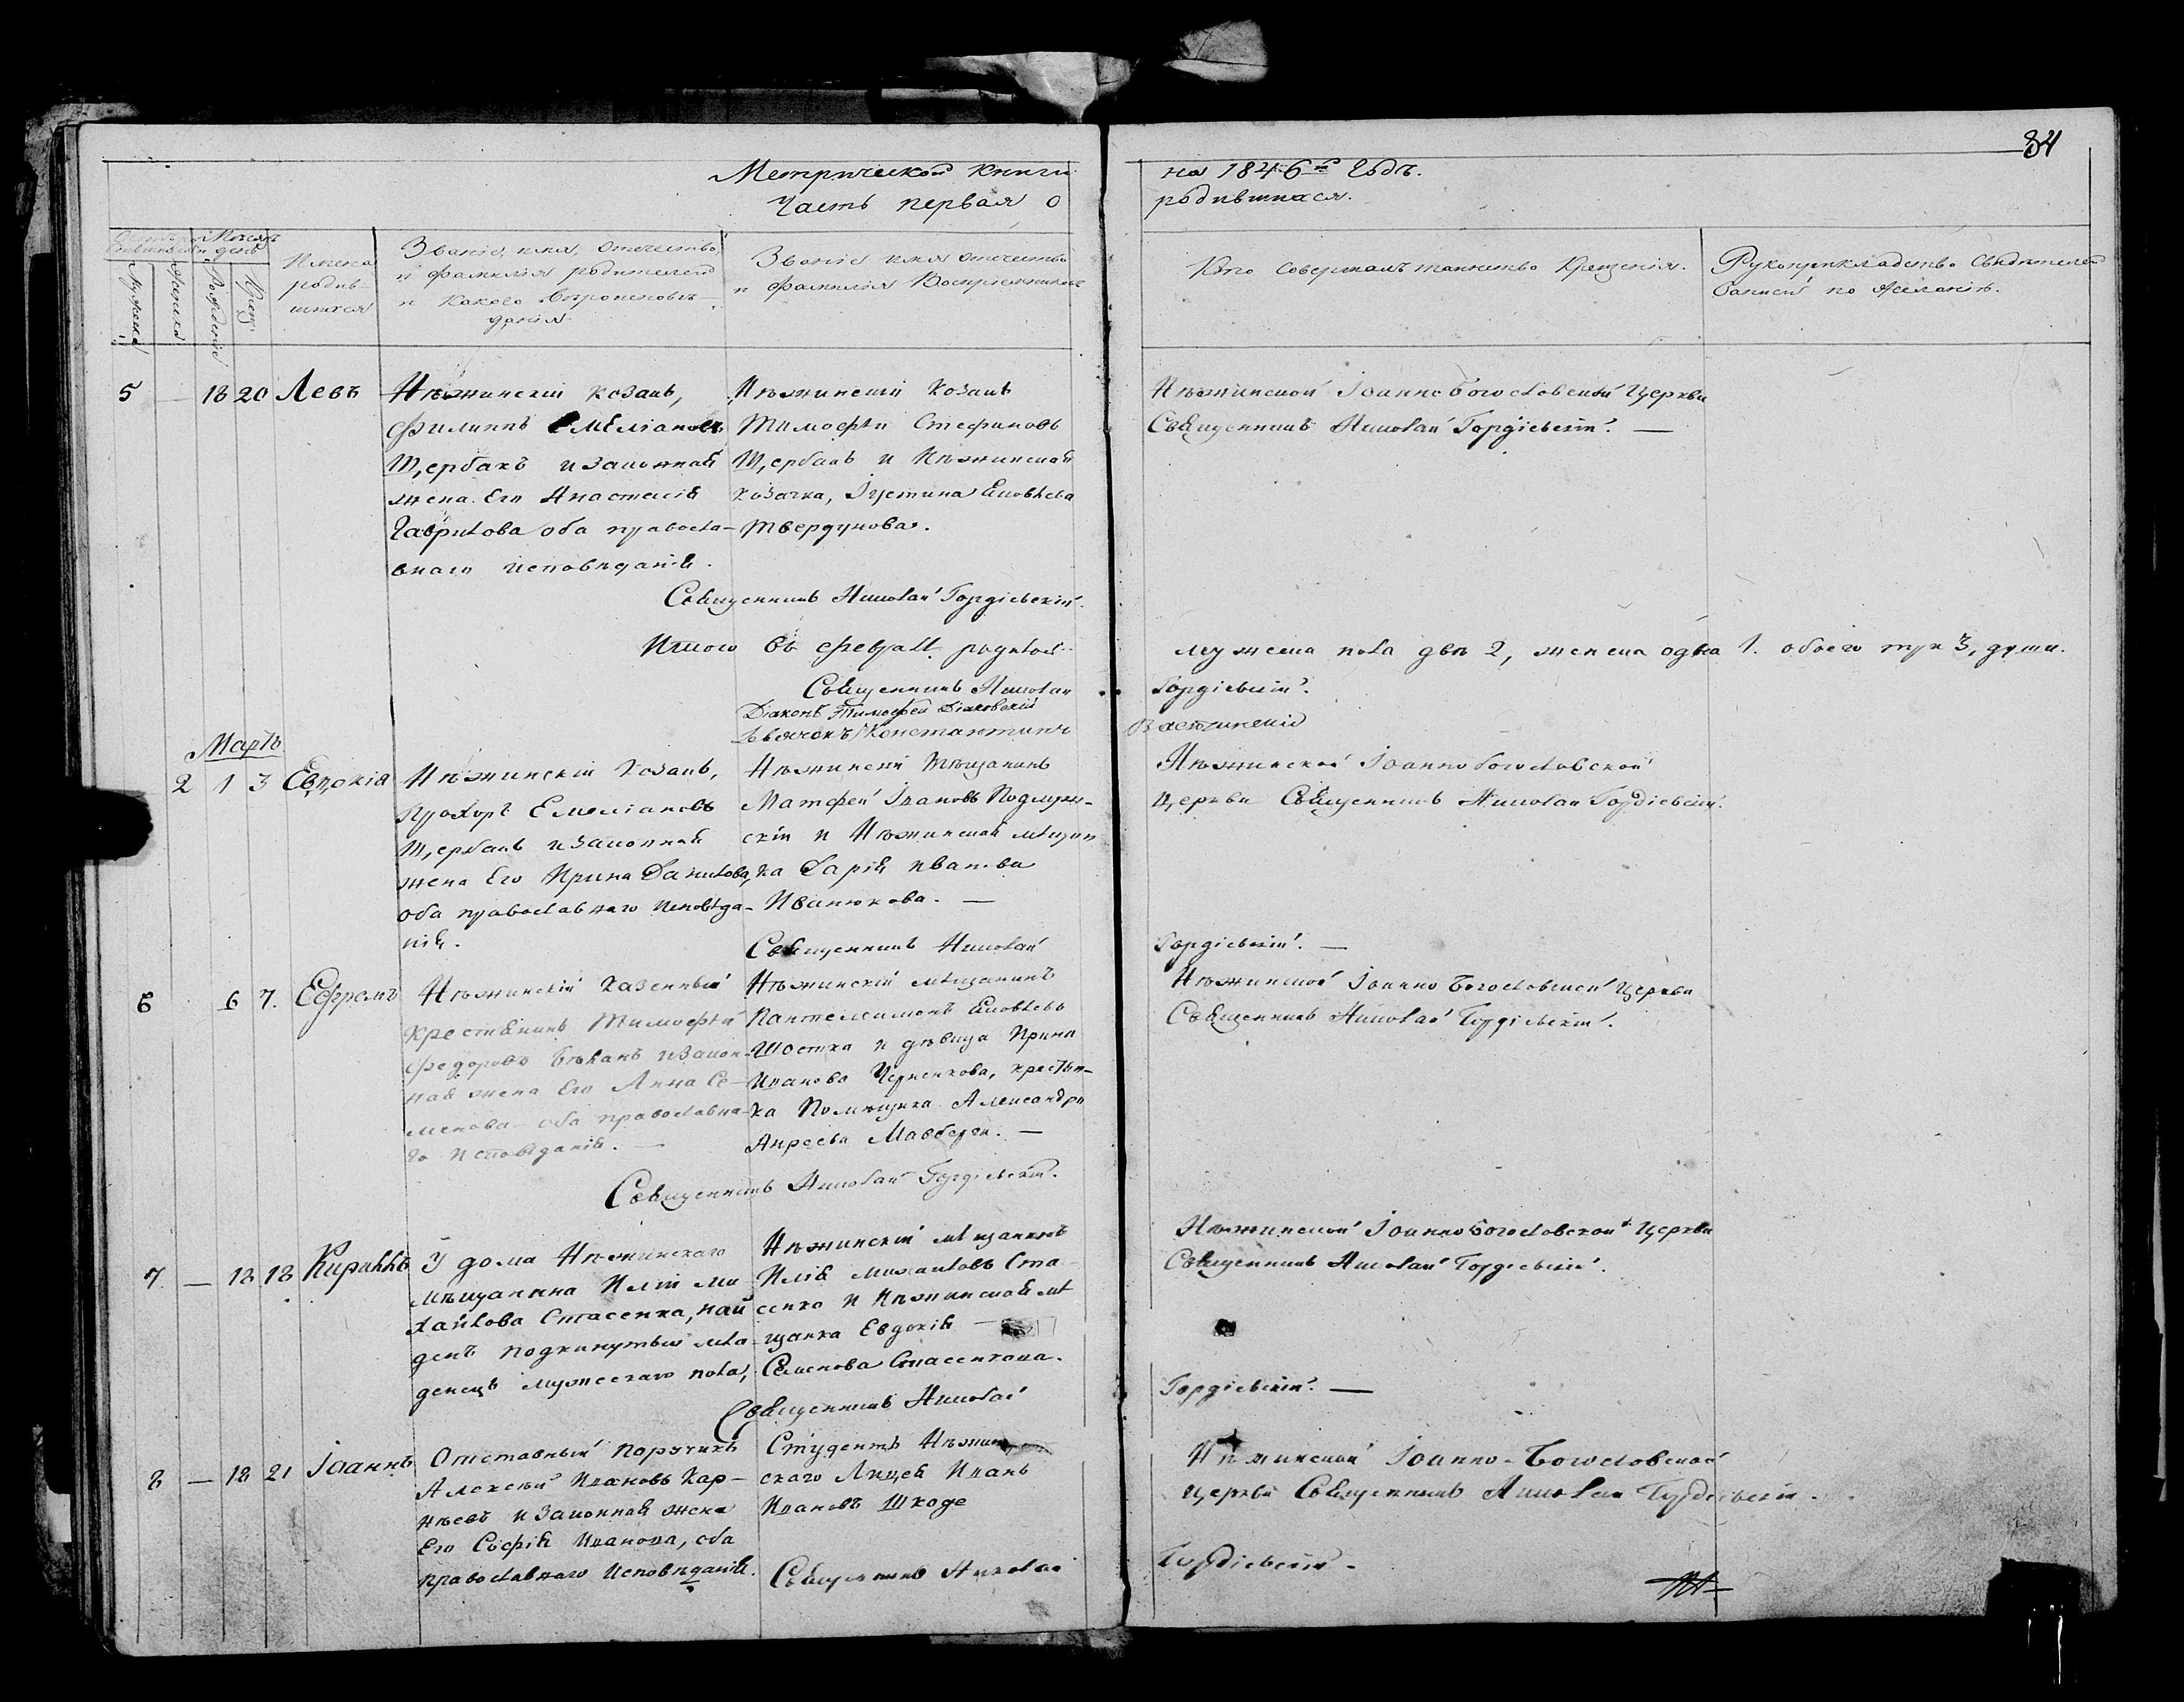 34
Метрической книги
Часть первая о
на 1846й Годъ.
родившихся.
Мѣсяцъ
и день
Мужеска
Женска
Рожденія
Крещ.
Имена
родив-
шихся
Званіе, имя, отечество,
и фамилія родителей
и какого вѣроисповѣ-
данія.
Званіе имя отечество
и фамилія Воспріемниковъ
Кто совершалъ таинство Крещенія.
Рукоприкладство Свидѣтелей
записи по желанію.
5 — 18 20 Левъ
Нѣжинскій козакъ,
Филиппъ Емеліановъ
Щербакъ и законная
жена Его Анастасія
Гаврилова оба правосла-
внаго исповѣданія.
Нѣжинскій Козакъ
Тимофей Стефановъ
Щербакъ и Нѣжинская
козачка, Іустина
Твердунова.
Нѣжинской Іоанно Богословской Церкви
Священникъ Николай Гордіевскій. —
Священникъ Николай Гордіевскій.
Итого въ Февралѣ родилось
мужеска пола два 2, женска одна 1. обоего три 3, души.
Священникъ Николай
Гордіевскій.
Діаконъ Тимофей Діаковскій
Дьячокъ Константинъ
Мартъ
2 1 3 Евдокія
Нѣжинскій козакъ,
Прохоръ Емеліановъ
Щербакъ и законная
жена Его Ирина Данилова,
оба православнаго исповѣда-
нія.
Нѣжинскій Мѣщанинъ
Матфей Івановъ
скій и Нѣжинская мѣщан
ка Дарія Иванова
Иванюкова. —
Нѣжинской Іоанно Богословской
Церкви Священникъ Николай Гордіевскій.
Священникъ Николай
Гордіевскій. —
6 6 7. Ефремъ
Нѣжинскій казенный
крестянинъ Тимофей
Федоровъ и закон-
ная жена Его Анна Се-
менова оба православна-
го исповѣданія. —
Нѣжинскій мѣщанинъ
Пантелеимонъ
Шостка и дѣвица Ирина
Иванова Черненкова, крестян-
ка Помѣщика Александра
Нѣжинской Іоанно Богословской Церкви
Священникъ Николай Гордіевскій.
Священникъ Николай Гордіевскій.
7 — 18 18 Кириллъ
У дома Нѣжинскаго
Мѣщанина Иліи Ми
хайлова Стасенка, най
денъ подкинутый мла-
денецъ мужескаго пола,
Нѣжинскій мѣщанинъ
Илія Михайловъ Ста
сенко и Нѣжинская мѣ
щанка Евдокія —
Семенова Стасенкова.
Нѣжинской Іоанно Богословской Церкви
Священникъ Николай Гордіевскій.
Священникъ Николай
Гордіевскій. —
8 — 18 21 Іоаннъ
Отставный поручикъ
Алексѣй Ивановъ Кар-
нѣевъ и законная жена
Его Софія Иванова, оба
православнаго исповѣданія.
Студентъ Нѣжин
скаго Лицея Иванъ
Ивановъ Шкоде
Нѣжинской Іоанно-Богословской
церкви Священникъ Николай Гордіевскій.
Священникъ Николай
Гордіевскій. —